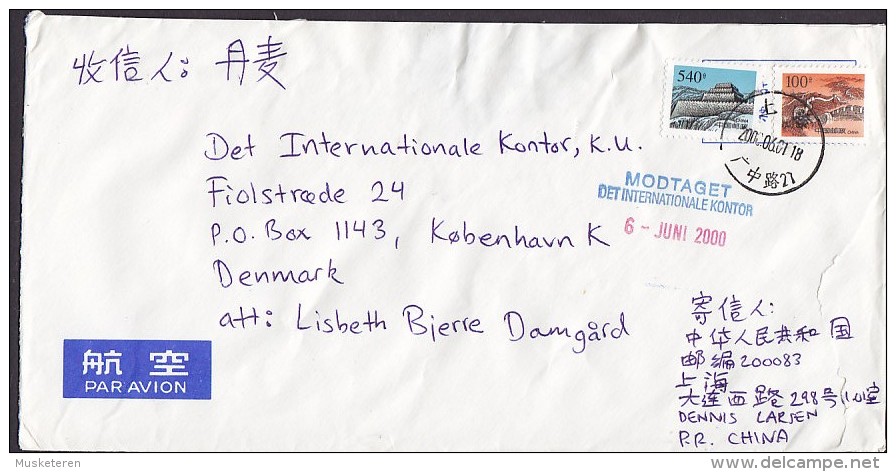 收信人: 丹麦
540分
100分
中国邮政 CHINA
上
2000.06.01 18
广中路27
Det Internationale Kontor, K.U.
Fiolstræde 24
P.O. Box 1143, København K
Denmark
att: Lisbeth Bjerre Damgård
MODTAGET
DET INTERNATIONALE KONTOR
6 - JUNI 2000
航空
PAR AVION
寄信人:
中华人民共和国
邮编 200083
上海
大连西路 298号
DENNIS LARSEN
P.R. CHINA
Musketeren
delcampe.net